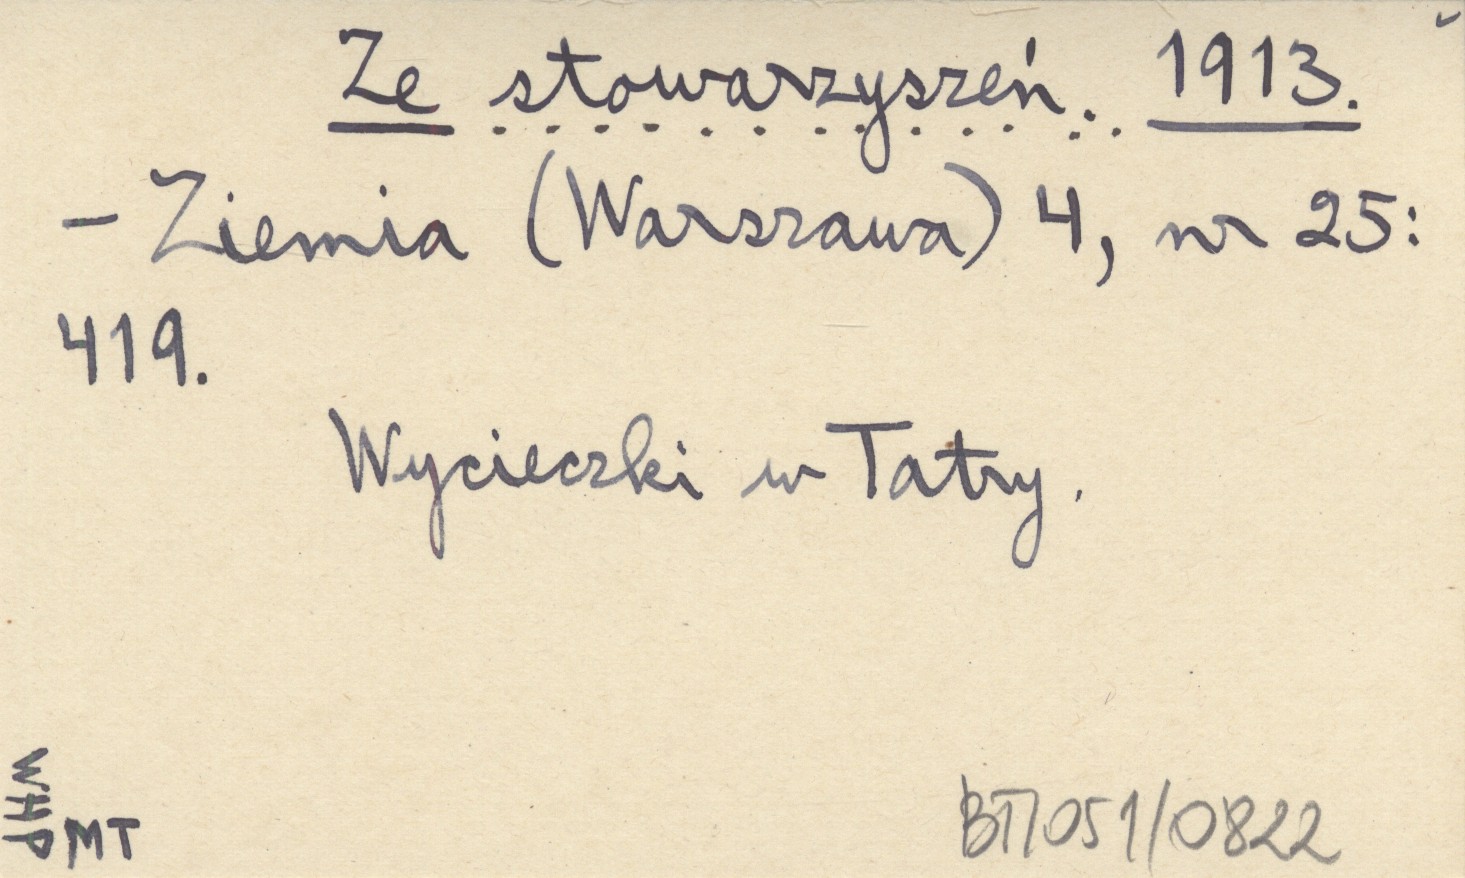 Ze stowarzyszeń. 1913.
– Ziemia (Warszawa) 4, nr 25:
419.
Wycieczki w Tatry.
WHP
MT
BT/051/0822